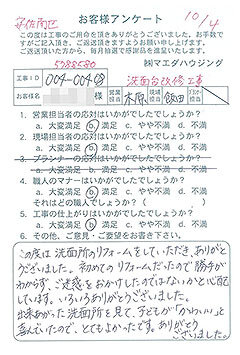 安佐南区
お客様アンケート
10/4
この度は工事のご用命を頂きありがとうございました。お手数で
すがご記入頂き、ご返送頂きますようお願い申し上げます。
ご返送頂いた方から、毎月抽選で感謝品を進呈いたします。
5988580
㈱マエダハウジング
工事ID
004-00408
洗面台改修工事
お客様名
様
営業担当
木原
現場担当
飯田
1. 営業担当者の応対はいかがでしたでしょうか?
a. 大変満足 b. 満足 c. やや不満 d. 不満
2. 現場担当者の応対はいかがでしたでしょうか?
a. 大変満足 b. 満足 c. やや不満 d. 不満
3. プランナーの応対はいかがでしたでしょうか?
a. 大変満足 b. 満足 c. やや不満 d. 不満
4. 職人のマナーはいかがでしたでしょうか?
a. 大変満足 b. 満足 c. やや不満 d. 不満
それはどの職人でしょうか?( )
5. 工事の仕上がりはいかがでしたでしょうか?
a. 大変満足 b. 満足 c. やや不満 d. 不満
6. その他、ご意見・ご要望をお書き下さい。
この度は洗面所のリフォームをしていただき、ありがと
うございました。初めてのリフォームだったので勝手が
わからず、ご迷惑をおかけしたのではないかと心配
しています。いろいろありがとうございました。
出来あがった洗面所を見て、子どもが「かわいい」と
喜んでいたので、とてもよかったです。ありがとう
ございました。